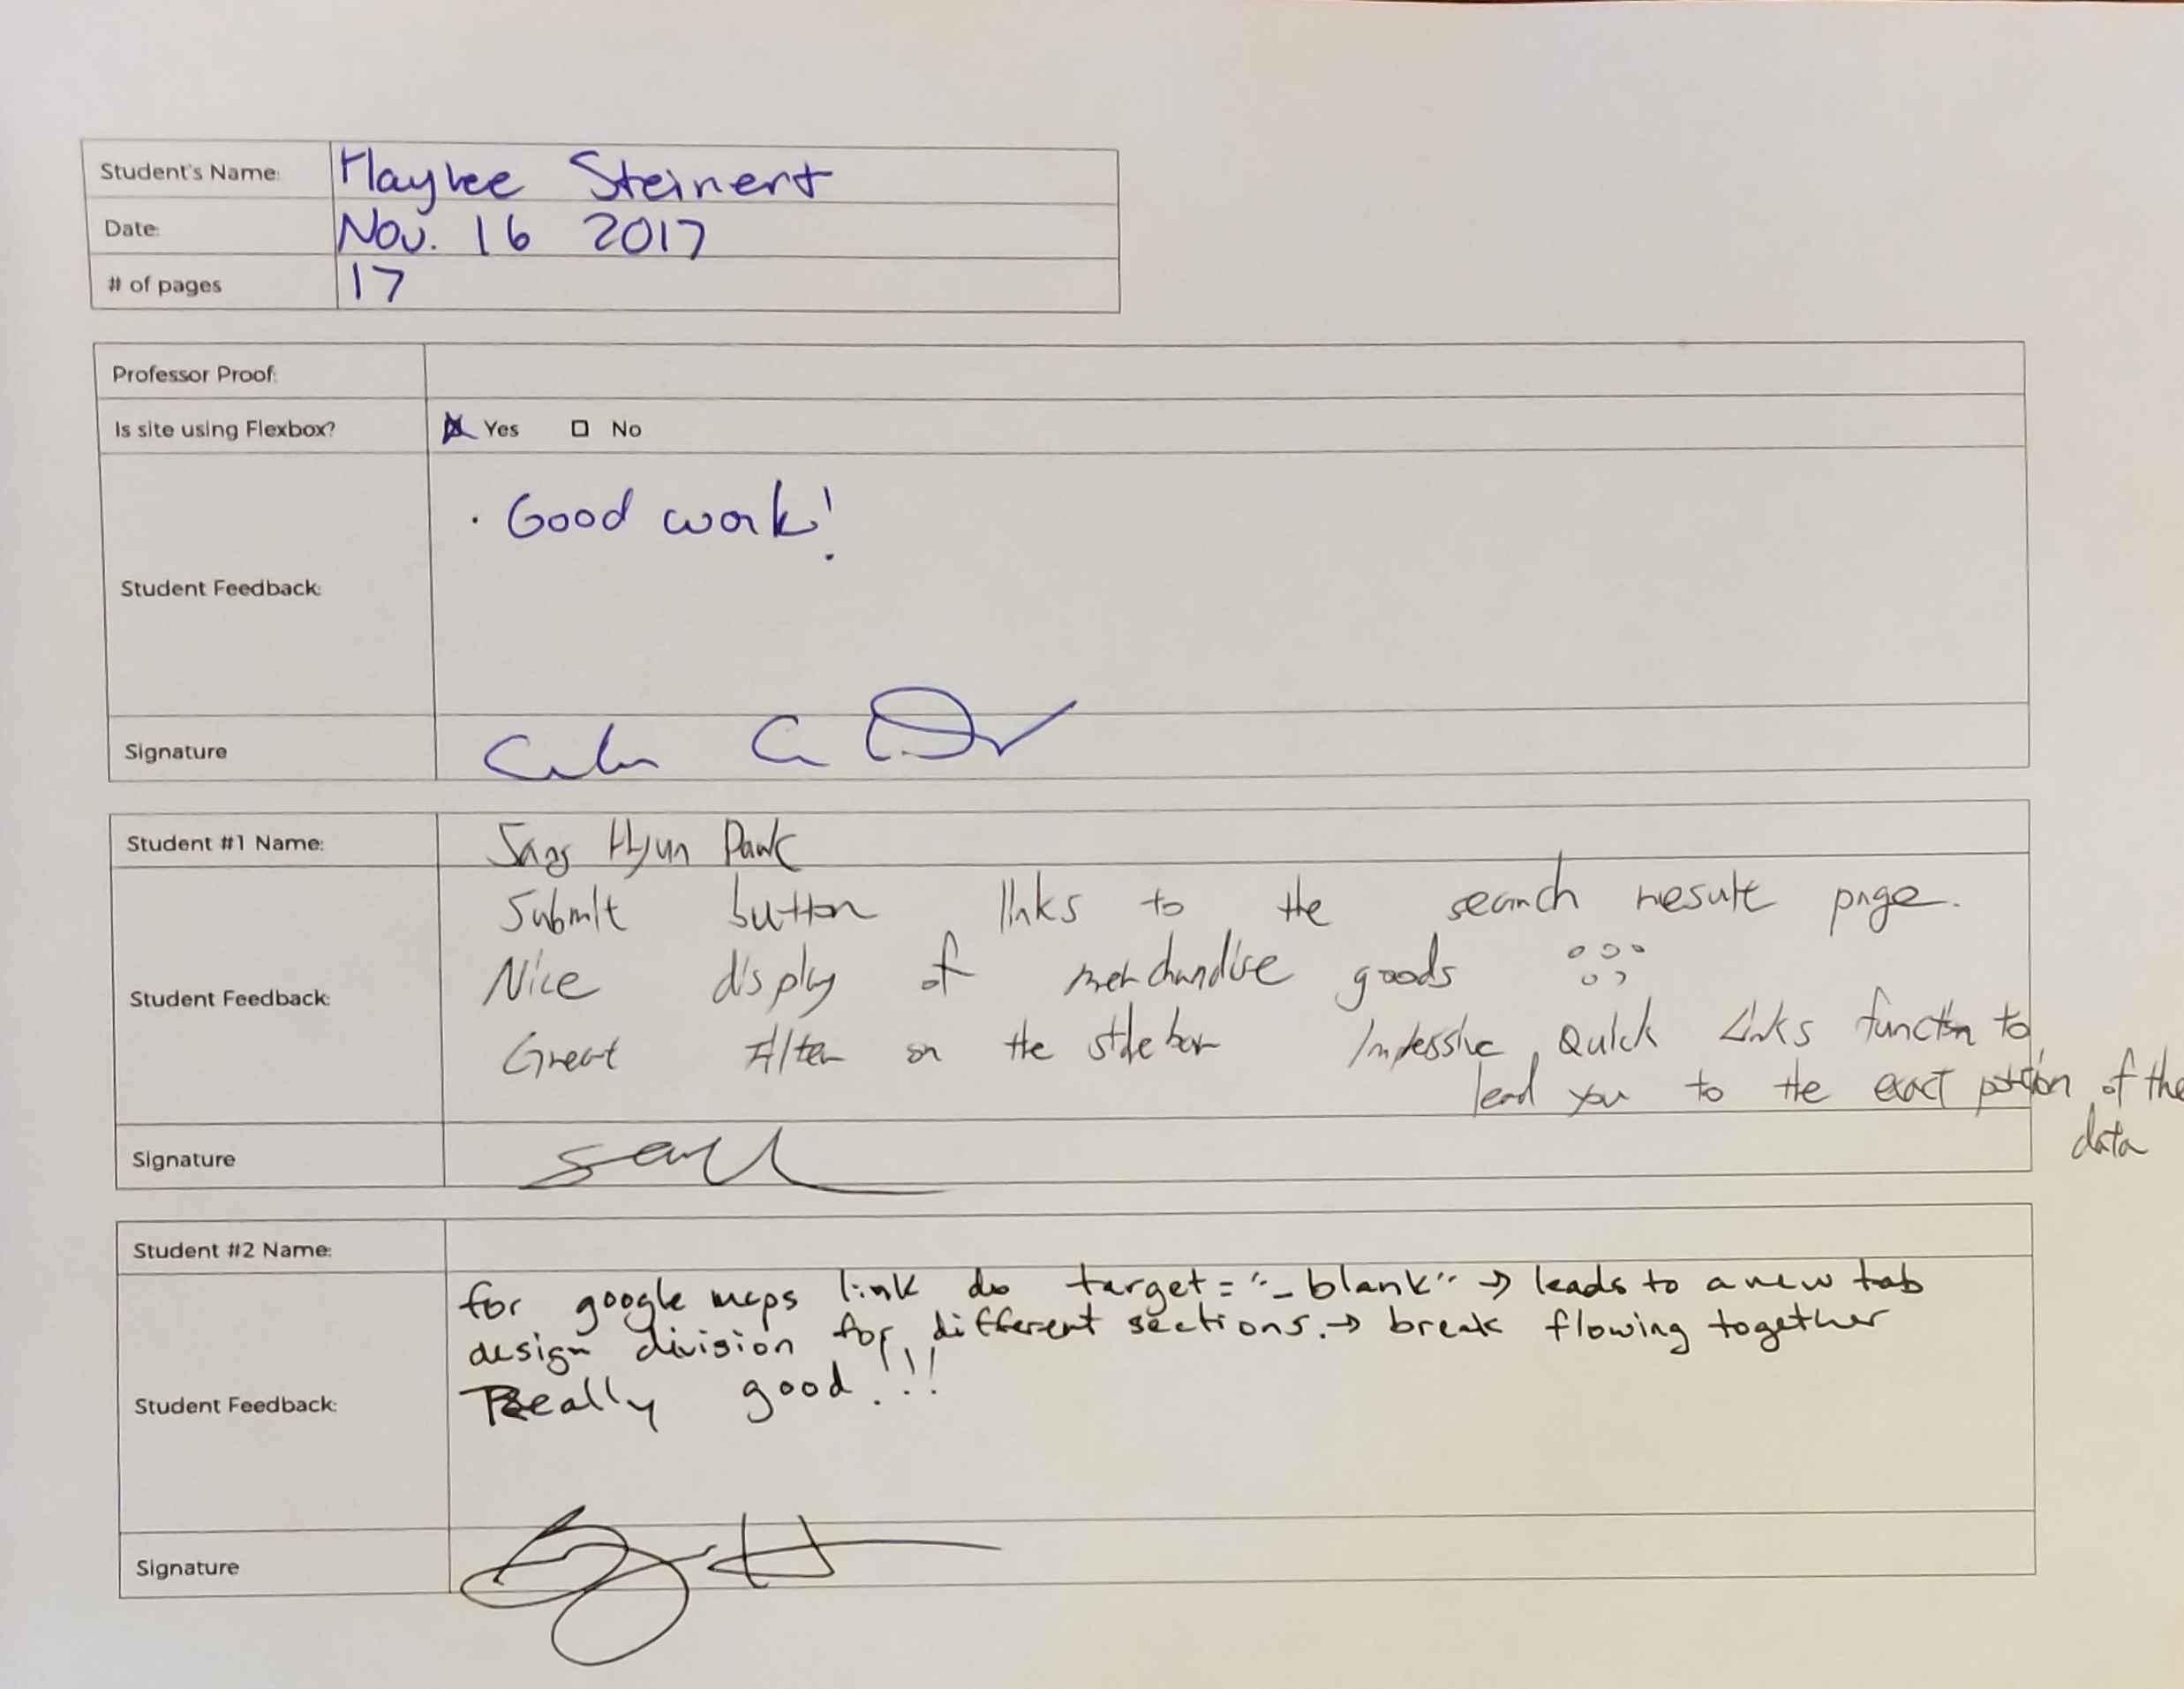 Student's Name: Haylee Steinert
Date: Nov. 16 2017
# of pages 17
Professor Proof:
Is site using Flexbox? Yes No
· Good work!
Student Feedback:
Signature
Student #1 Name: Sang Hyun Park
Submit button links to the search result page.
Nice display of merchandise goods
Student Feedback:
Great Filter on the sidebar Impessive Quick Links function to
lead you to the exact position of the
data
Signature
Student #2 Name:
for google maps link do target="_blank" → leads to a new tab
design division for different sections. → break flowing together
Really good!!!
Student Feedback:
Signature